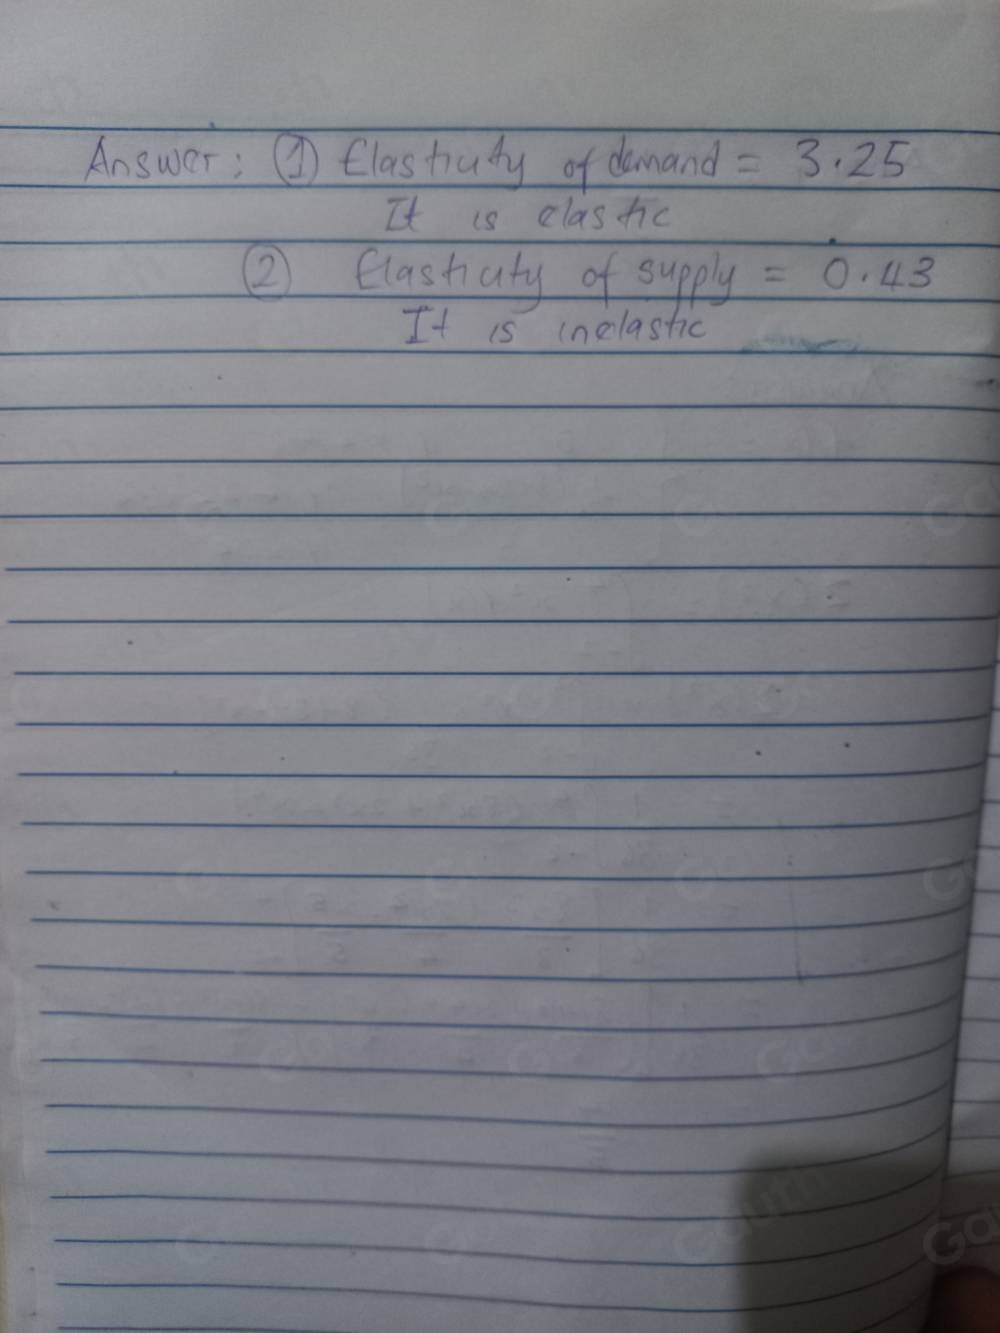 Answer: ① Elasticity of demand = 3.25
It is elastic
② Elasticity of supply = 0.43
It is inelastic
Gauth